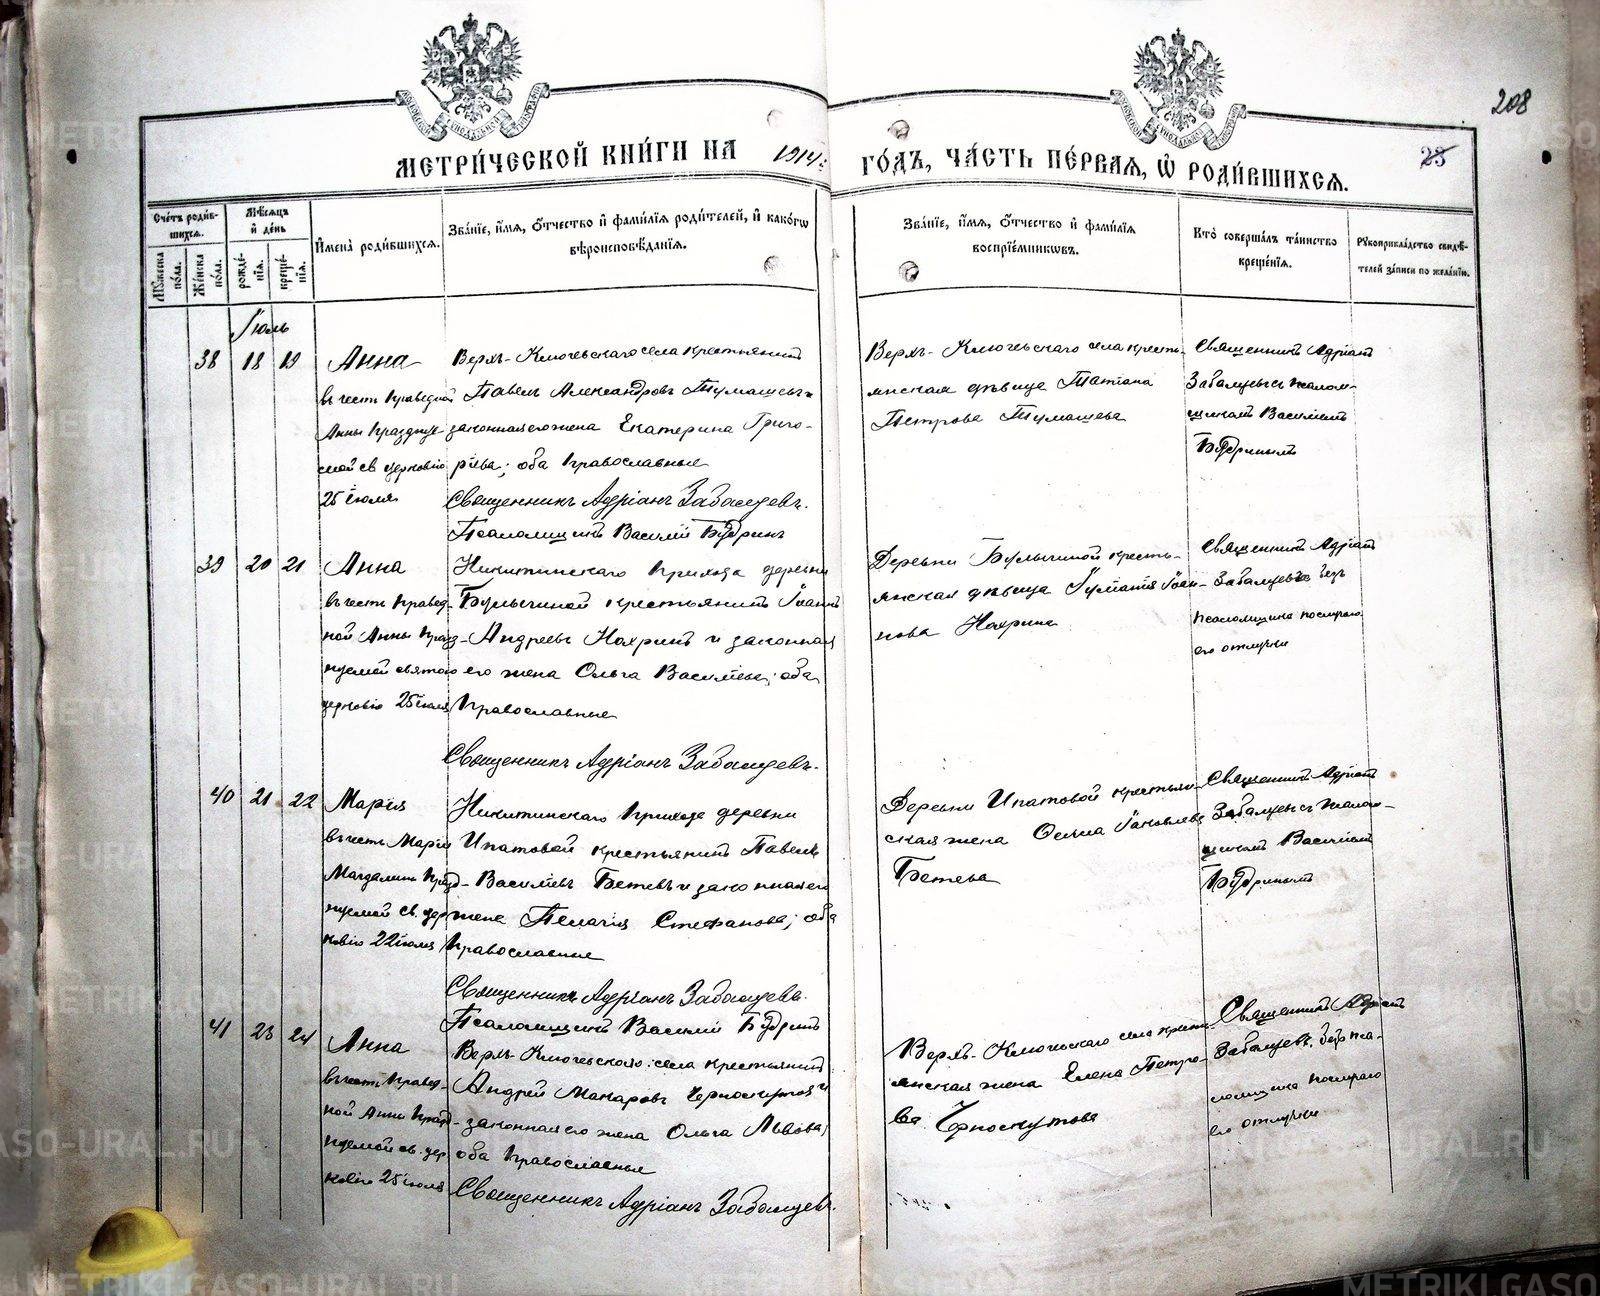 208
МЕТРИ́ЧЕСКОЙ КНИ́ГИ НА 1914 г.
ГО́ДЪ, ЧА́СТЬ ПЕ́РВАЯ, Ѽ РОДИ́ВШИХСЯ.
23
Сче́тъ роди́в-
шихся.
Мѣ́сяцъ
и́ де́нь
Му́жеска
по́ла.
Же́нска
по́ла.
рожде́-
нїя.
креще́-
нїя.
И҆мена̀ роди́вшихся.
Зва́нїе, и҆́мя, ѻ҆́тчество и҆ фами́лїя роди́телей, и҆ како́гѡ
вѣроисповѣ́данїя.
Зва́нїе, и҆́мя, ѻ҆́тчество и҆ фами́лїя
воспрїе́мникѡвъ.
Кто̀ соверша́лъ та́инство
креще́нїя.
Рꙋкоприкла́дство свидѣ́-
телей за́писи по жела́нїю.
Іюль
38 18 19
Анна
въ честь праведной
Анны празднуе-
мой св. церковію
25 іюля
Верхъ-Ключевскаго села крестьянинъ
Павелъ Александровъ Тумашевъ и
законная его жена Екатерина Григо-
рьева; оба православные
Священникъ Адріанъ Забалуевъ.
Псаломщикъ Василій Будринъ
Верхъ-Ключевскаго села кресть-
янская дѣвица Татіана
Петрова Тумашева
Священникъ Адріанъ
Забалуевъ съ псалом-
щикомъ Василіемъ
Будринымъ
39 20 21
Анна
въ честь правед-
ной Анны празд-
нуемой святою
церковію 25 іюля
Никитинскаго прихода деревни
Булычиной крестьянинъ Іоаннъ
Андреевъ Нахринъ и законная
его жена Ольга Васильева; оба
православные
Священникъ Адріанъ Забалуевъ.
Деревни Булычиной кресть-
янская дѣвица Іуліанія Іоан-
нова Нахрина
Священникъ Адріанъ
Забалуевъ безъ
псаломщика по случаю
его отлучки
40 21 22
Марія
въ честь Маріи
Магдалины празд-
нуемой св. цер-
ковію 22 іюля
Никитинскаго прихода деревни
Ипатовой крестьянинъ Павелъ
Васильевъ Бетевъ и законная его
жена Пелагія Стефанова; оба
православные
Священникъ Адріанъ Забалуевъ.
Псаломщикъ Василій Будринъ
Деревни Ипатовой крестьян-
ская жена Іаковлева
Бетева
Священникъ Адріанъ
Забалуевъ съ псалом-
щикомъ Василіемъ
Будринымъ
41 23 24
Анна
въ честь правед-
ной Анны празд-
нуемой св. цер-
ковію 25 іюля
Верхъ-Ключевскаго села крестьянинъ
Андрей Макаровъ Черноскутовъ и
законная его жена Ольга Львова;
оба православные
Священникъ Адріанъ Забалуевъ.
Верхъ-Ключевскаго села кресть-
янская жена Елена Петро-
ва Черноскутова
Священникъ Адріанъ
Забалуевъ безъ пса-
ломщика по случаю
его отлучки
METRIKI.GASO-URAL.RU